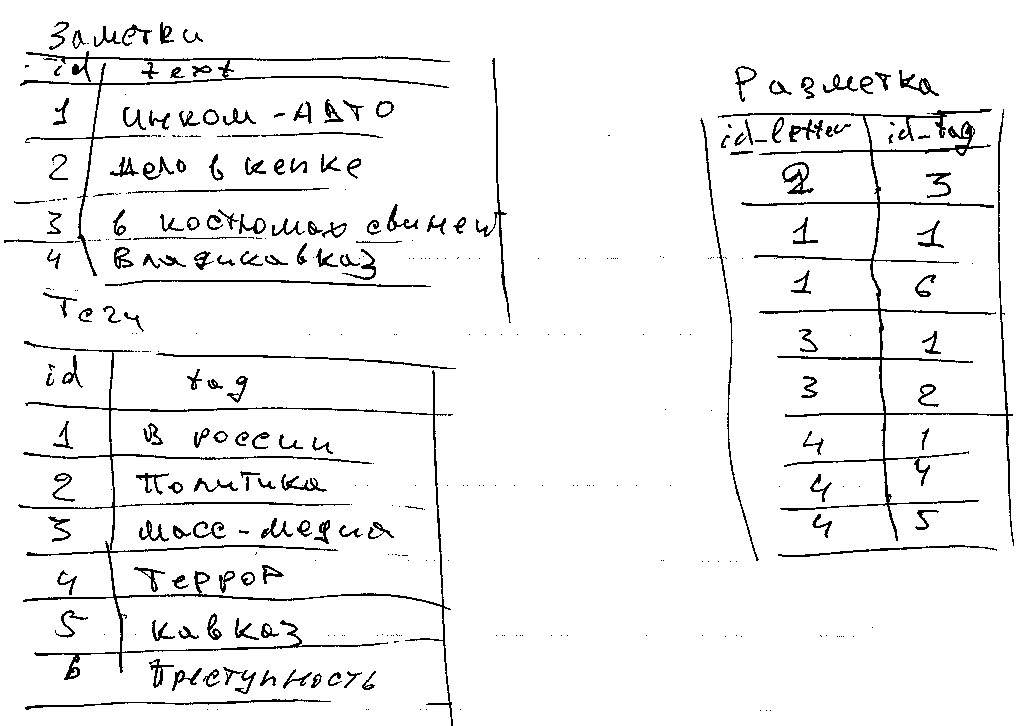 Заметки
id text
1 Инком-Авто
2 Дело в кепке
3 в костюмах свиней
4 Владикавказ
Теги
id tag
1 В россии
2 Политика
3 масс-медиа
4 Террор
5 кавказ
6 Преступность
Разметка
id_letter id_tag
2 3
1 1
1 6
3 1
3 2
4 1
4 4
4 5